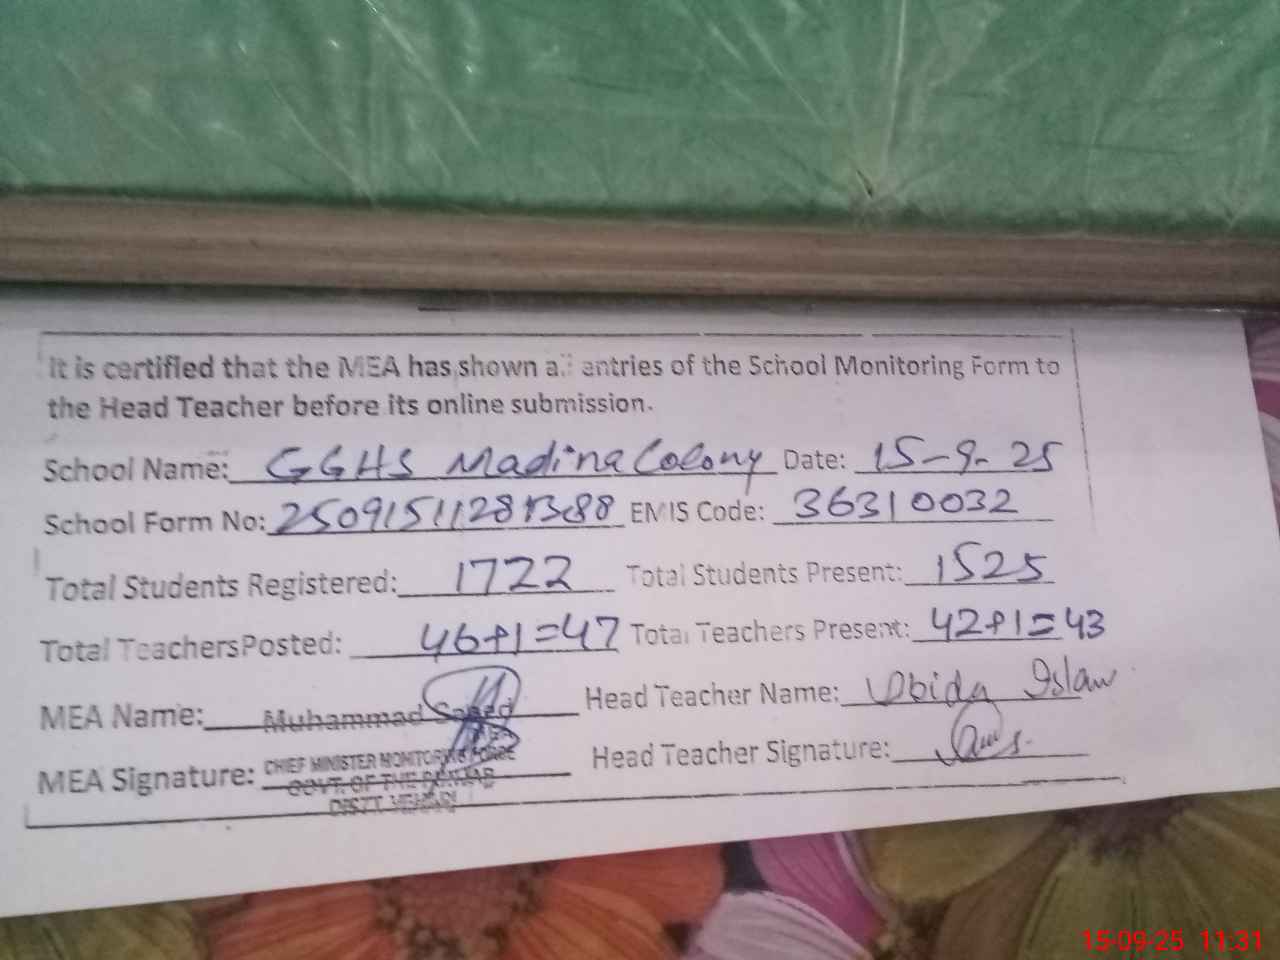 It is certified that the MEA has shown all entries of the School Monitoring Form to
the Head Teacher before its online submission.
School Name: GGHS Madina Colony Date: 15-9-25
School Form No: EMIS Code: 36310032
Total Students Registered: 1722 Total Students Present: 1525
Total TeachersPosted: 46+1=47 Total Teachers Present: 42+1=43
MEA Name: Muhammad Saeed Head Teacher Name: Islam
MEA Signature: CHIEF MINISTER MONITORING FORCE Head Teacher Signature:
GOVT. OF THE PUNJAB
DISTT. VEHARI
15-09-25 11:31